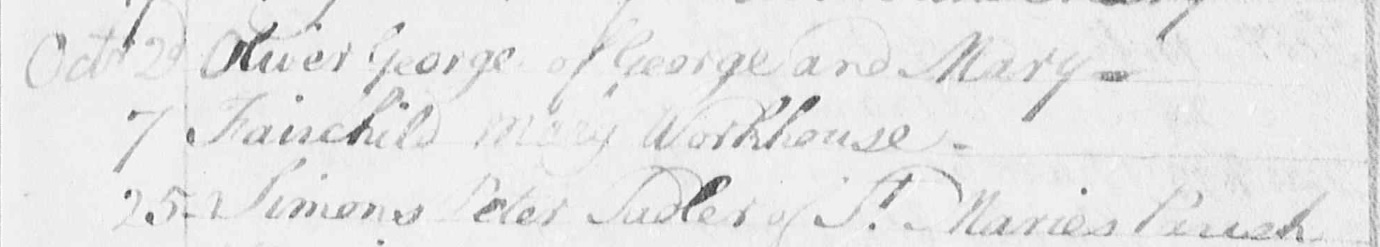 Octr 2d Oliver George of George and Mary
7 Fairchild Mary Workhouse
25 Simons Peter Sadler of St. Maries Parish